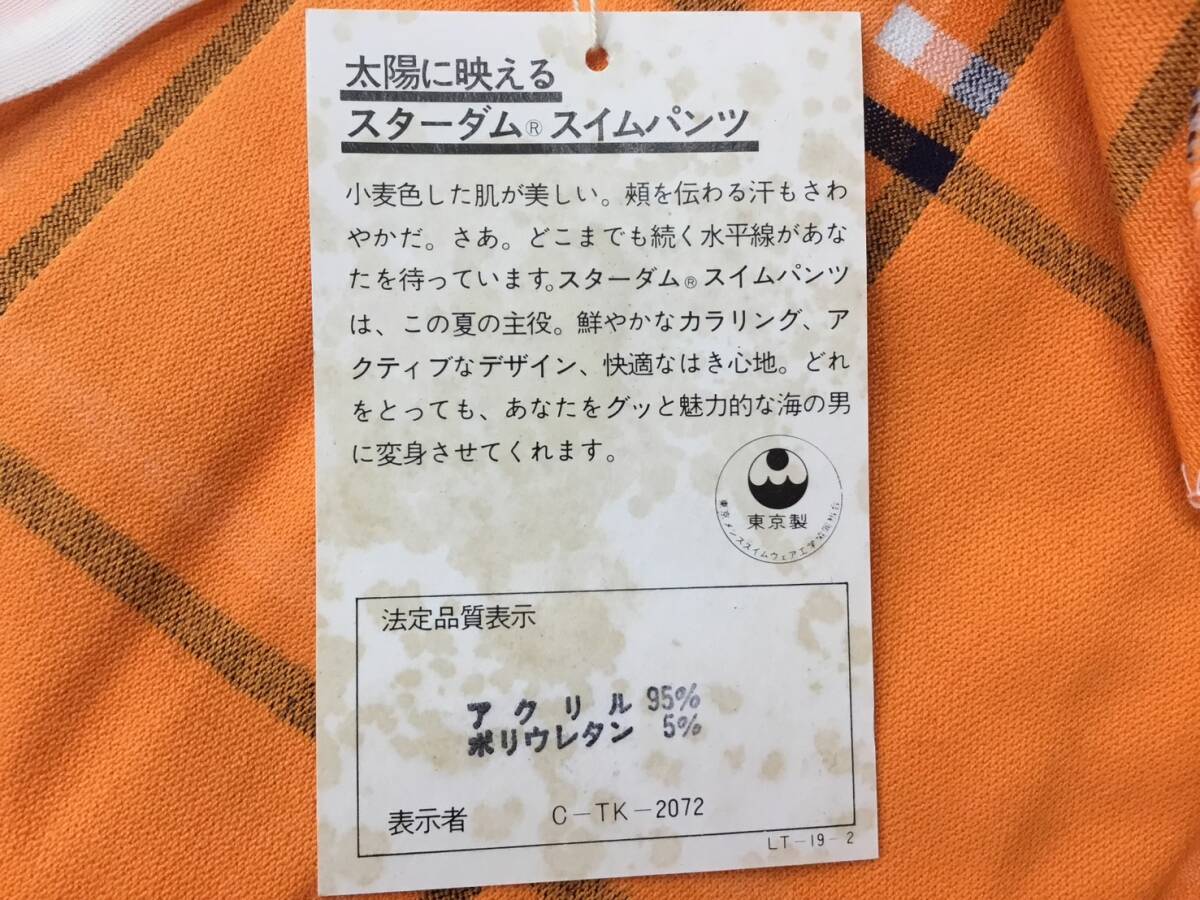 太陽に映える
スターダム® スイムパンツ
小麦色した肌が美しい。頬を伝わる汗もさわ
やかだ。さあ。どこまでも続く水平線があな
たを待っています。スターダム® スイムパンツ
は、この夏の主役。鮮やかなカラリング、ア
クティブなデザイン、快適なはき心地。どれ
をとっても、あなたをグッと魅力的な海の男
に変身させてくれます。
東京製
東京メンズスイムウェア工業
法定品質表示
アクリル 95%
ポリウレタン 5%
表示者 C-TK-2072
LT-19-2